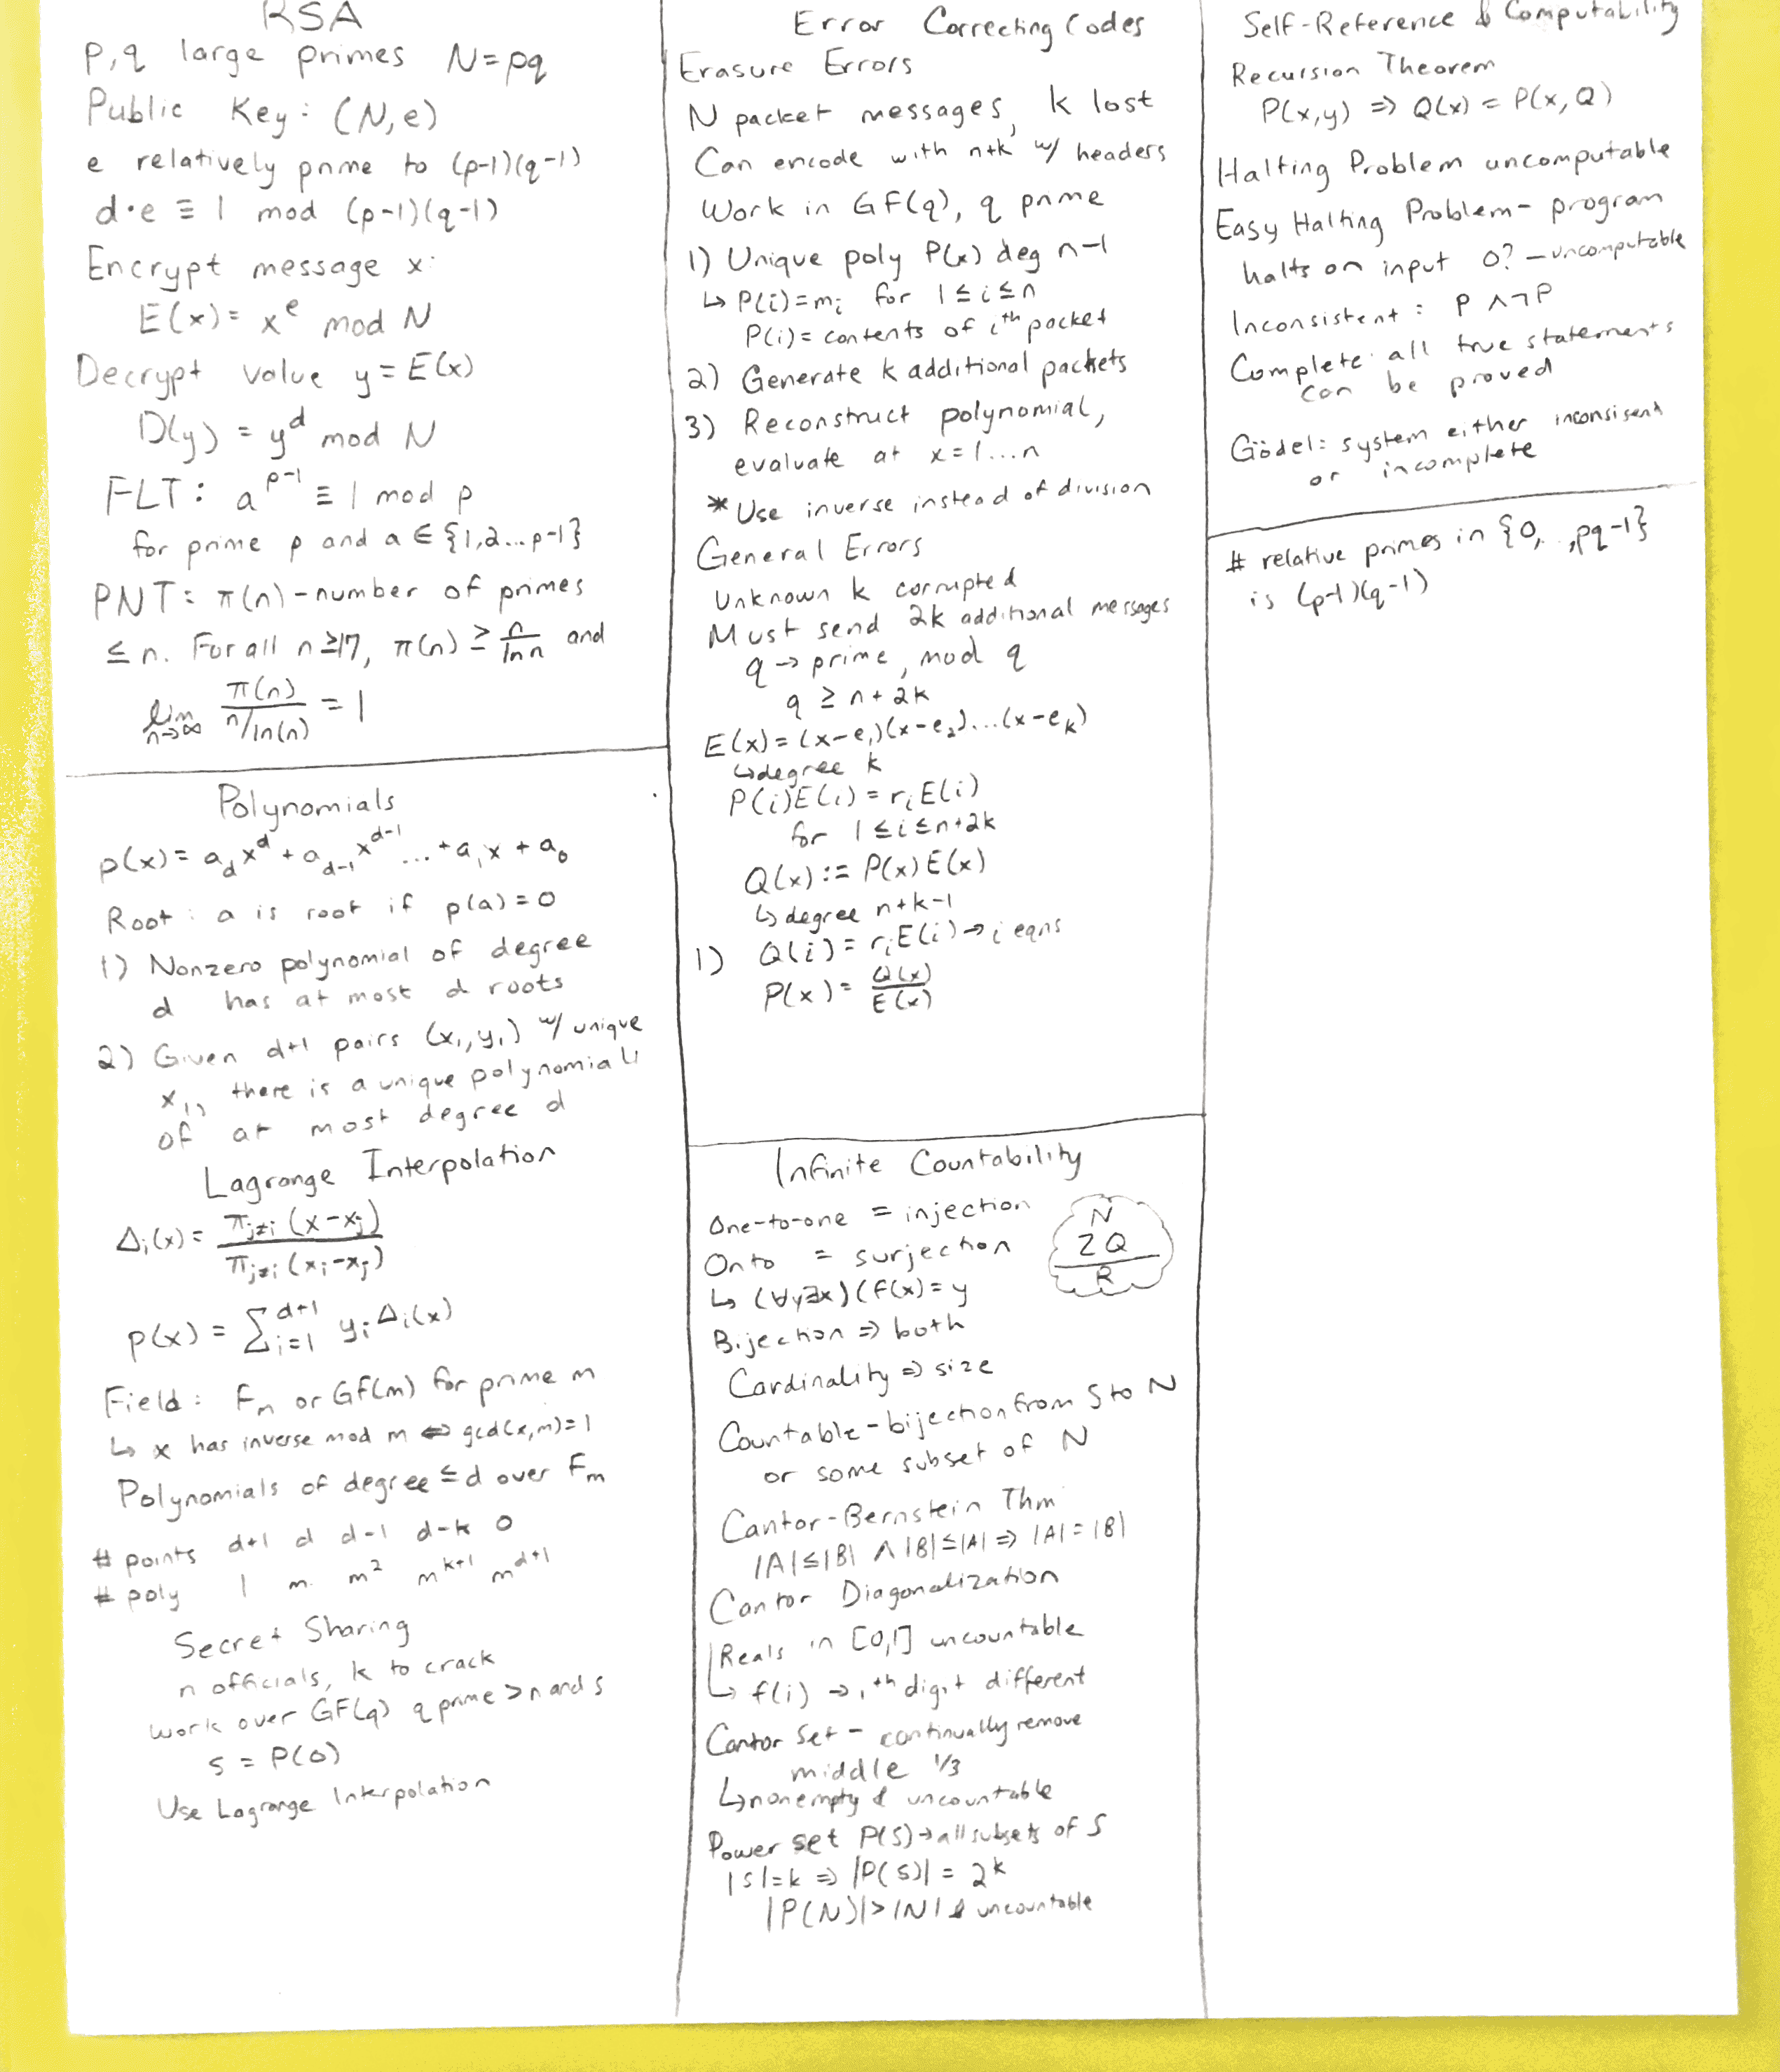 RSA
p,q large primes N=pq
Public Key: (N,e)
e relatively prime to (p-1)(q-1)
d·e ≡ 1 mod (p-1)(q-1)
Encrypt message x:
E(x) = x^e mod N
Decrypt value y = E(x)
D(y) = y^d mod N
FLT: a^(p-1) ≡ 1 mod p
for prime p and a ∈ {1,2...p-1}
PNT: π(n) - number of primes
≤ n. For all n ≥ 17, π(n) ≥ n/ln n and
lim n→∞ π(n)/(n/ln(n)) = 1
Polynomials
p(x) = a_d x^d + a_{d-1} x^{d-1} ... + a_1 x + a_0
Root: a is root if p(a) = 0
1) Nonzero polynomial of degree
d has at most d roots
2) Given d+1 pairs (x_i, y_i) w/ unique
x_i, there is a unique polynomial
of at most degree d
Lagrange Interpolation
Δ_i(x) = π_{j≠i} (x-x_j) / π_{j≠i} (x_i-x_j)
p(x) = Σ_{i=1}^{d+1} y_i Δ_i(x)
Field: F_m or GF(m) for prime m
↳ x has inverse mod m ⇔ gcd(x,m)=1
Polynomials of degree ≤ d over F_m
# points d+1 d d-1 d-k 0
# poly 1 m m^2 m^{k+1} m^{d+1}
Secret Sharing
n officials, k to crack
work over GF(q) q prime > n and s
s = P(0)
Use Lagrange Interpolation
Error Correcting Codes
Erasure Errors
N packet messages, k lost
Can encode with n+k w/ headers
Work in GF(q), q prime
1) Unique poly P(x) deg n-1
↳ P(i) = m_i for 1 ≤ i ≤ n
P(i) = contents of i^th packet
2) Generate k additional packets
3) Reconstruct polynomial,
evaluate at x = 1...n
* Use inverse instead of division
General Errors
Unknown k corrupted
Must send 2k additional messages
q → prime, mod q
q ≥ n + 2k
E(x) = (x-e_1)(x-e_2)...(x-e_k)
↳ degree k
P(i)E(i) = r_i E(i)
for 1 ≤ i ≤ n+2k
Q(x) := P(x) E(x)
↳ degree n+k-1
1) Q(i) = r_i E(i) → i eqns
P(x) = Q(x)/E(x)
Infinite Countability
One-to-one = injection
Onto = surjection
↳ (∀y∃x)(f(x) = y
Bijection ⇒ both
N
Z Q
R
Cardinality ⇒ size
Countable - bijection from S to N
or some subset of N
Cantor-Bernstein Thm
|A| ≤ |B| ∧ |B| ≤ |A| ⇒ |A| = |B|
Cantor Diagonalization
Reals in [0,1] uncountable
↳ f(i) → i^th digit different
Cantor Set - continually remove
middle 1/3
↳ nonempty & uncountable
Power set P(S) → all subsets of S
|S| = k ⇒ |P(S)| = 2^k
|P(N)| > |N| & uncountable
Self-Reference & Computability
Recursion Theorem
P(x,y) ⇒ Q(x) = P(x, Q)
Halting Problem uncomputable
Easy Halting Problem - program
halts on input 0? - uncomputable
Inconsistent: P ∧ ¬P
Complete: all true statements
can be proved
Gödel: system either inconsisent
or incomplete
# relative primes in {0,..,pq-1}
is (p-1)(q-1)